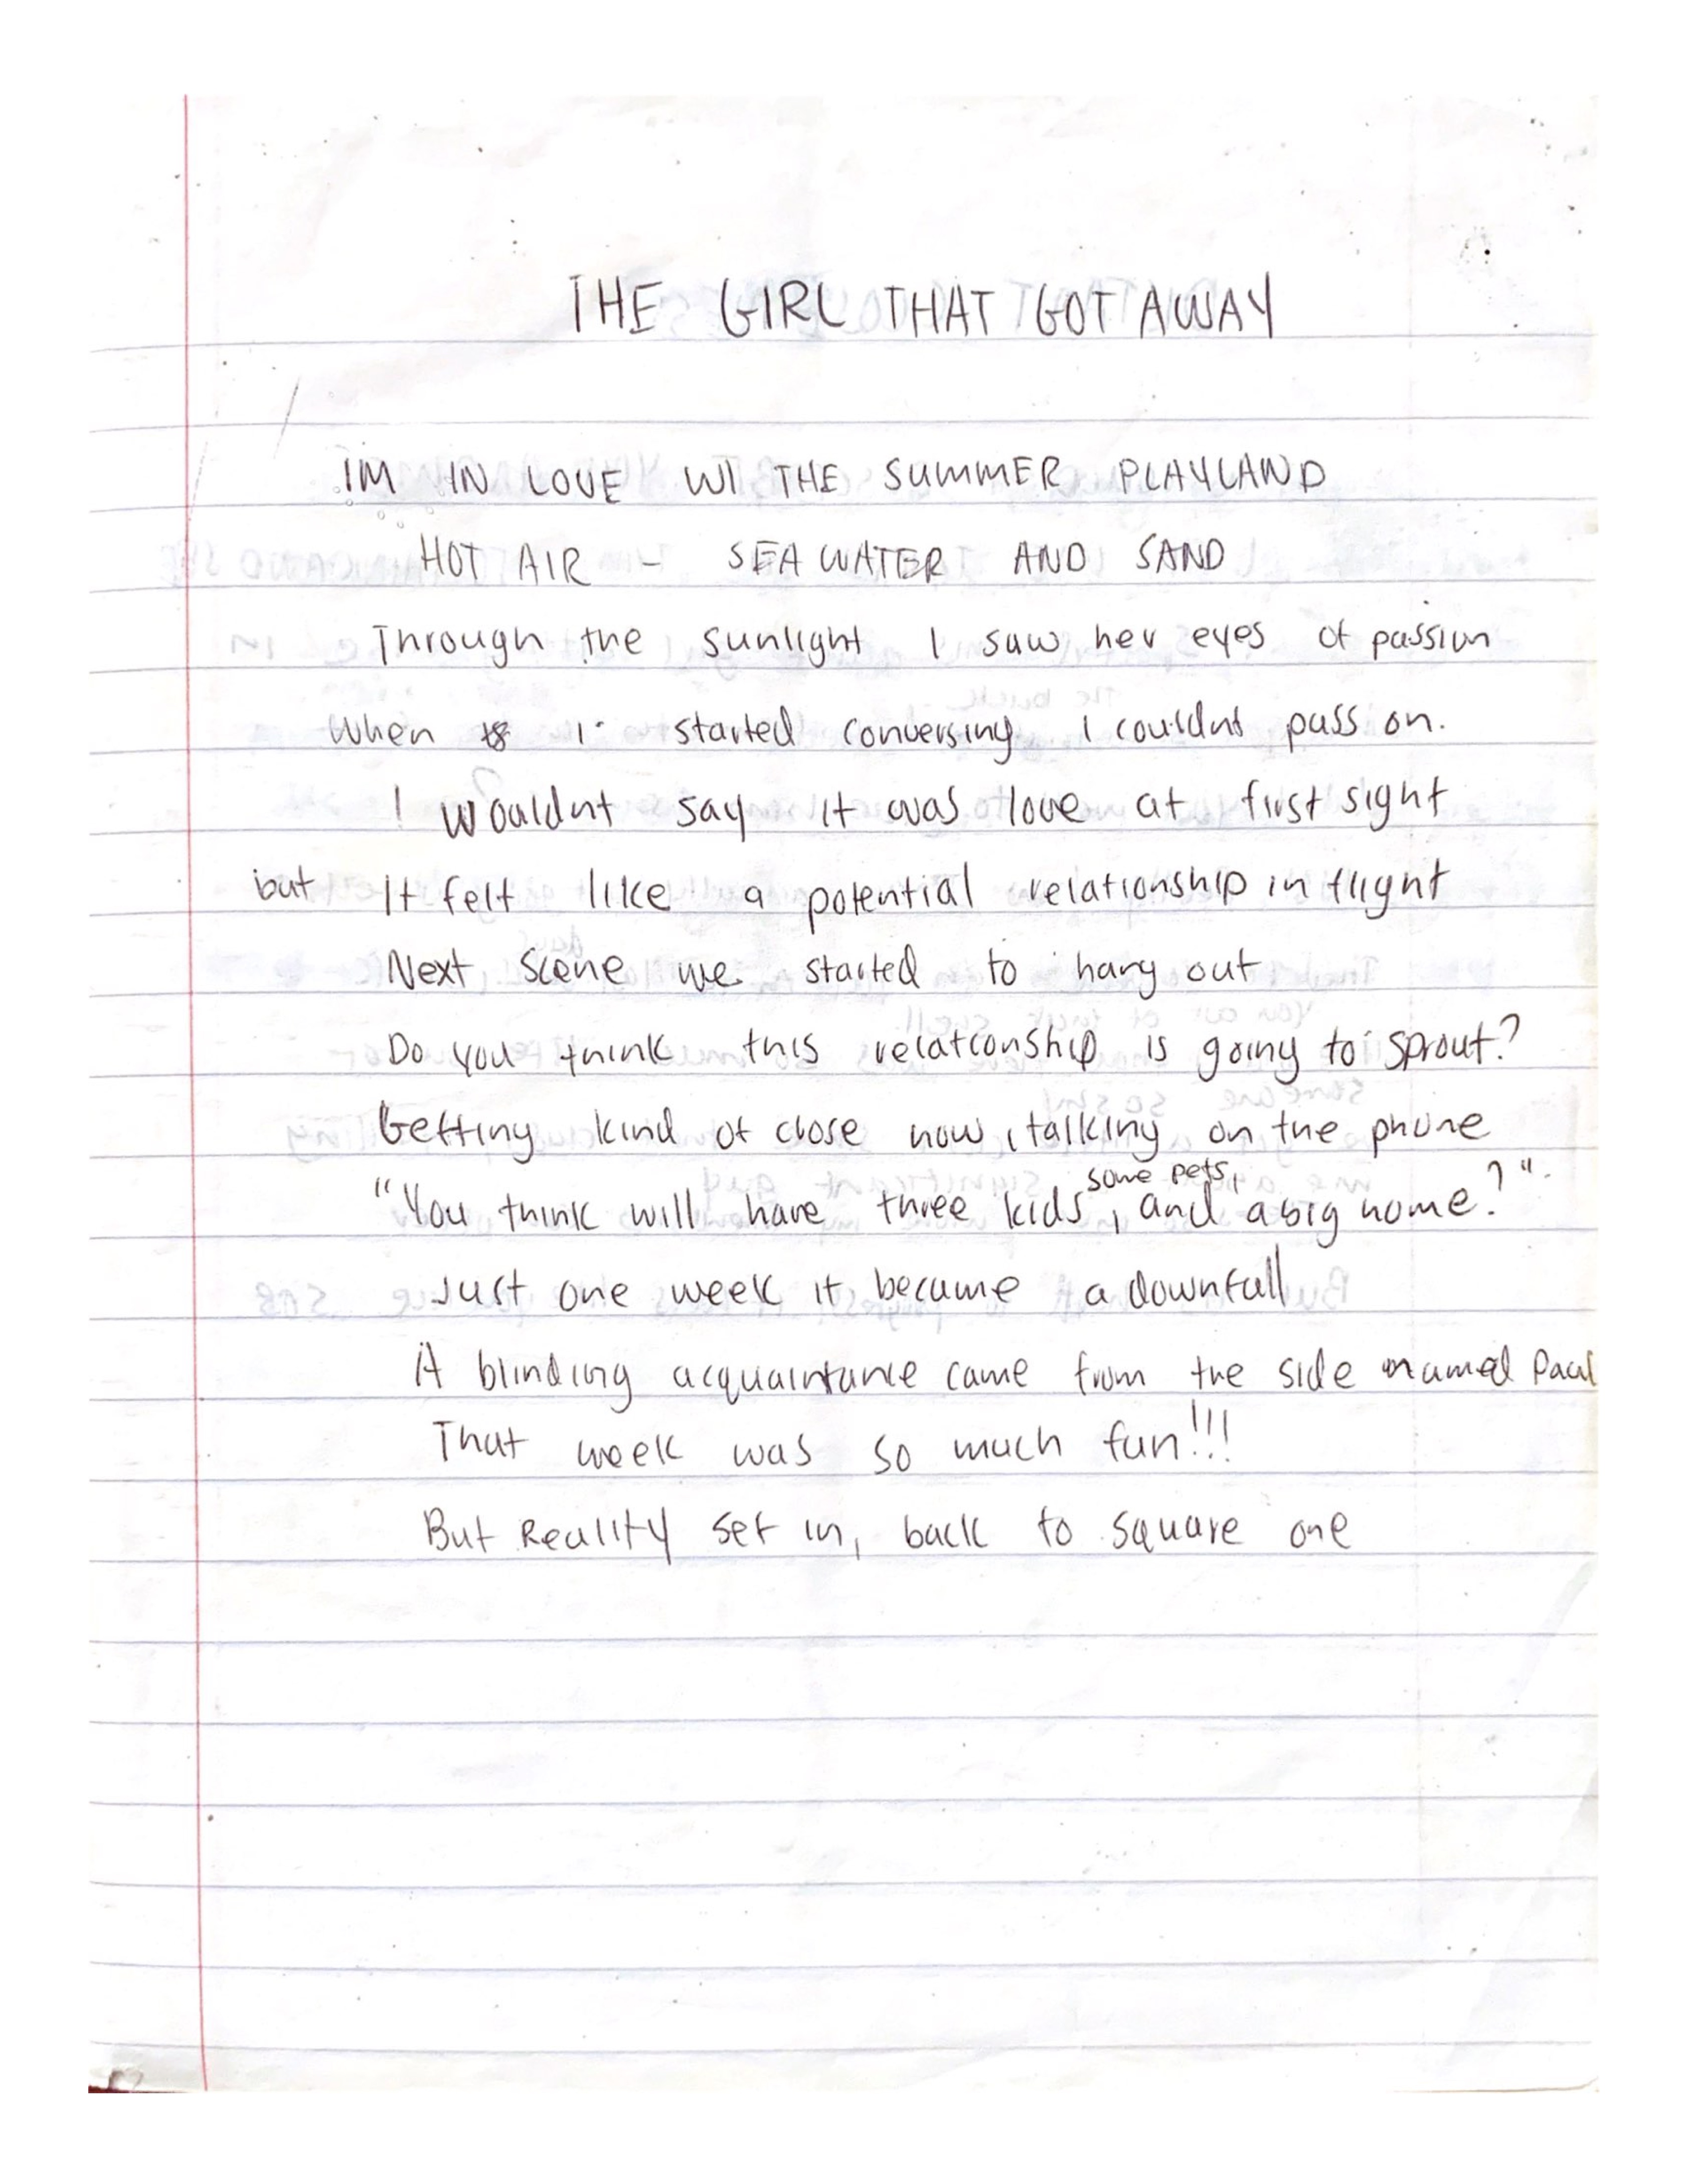 THE GIRL THAT GOT AWAY
IM IN LOVE W/ THE SUMMER PLAYLAND
HOT AIR - SEA WATER AND SAND
Through the sunlight I saw her eyes of passion
When I started conversing, I couldnt pass on.
I wouldnt say it was love at first sight
but It felt like a potential relationship in flight
Next scene we started to hang out
Do you think this relationship is going to sprout?
Getting kind of close now, talking on the phone
some pets,
"You think will have three kids, and a big home?".
Just one week it became a downfall
A blinding acquaintance came from the side named Paul
That week was so much fun!!!
But Reality set in, back to square one